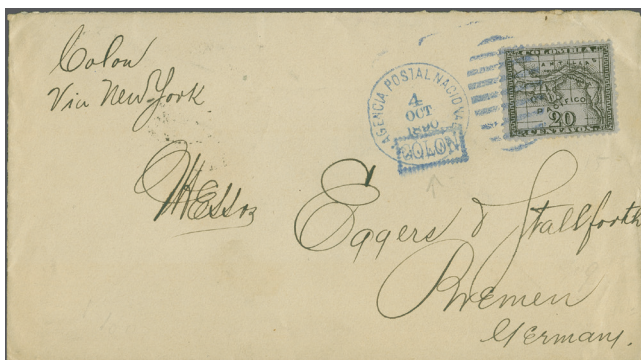 Colon
Via New York
AGENCIA POSTAL NACIONAL
4
OCT
1890
COLON
COLOMBIA
20
CENTAVOS
Messrs
Eggers & Stallforth
Bremen
Germany.